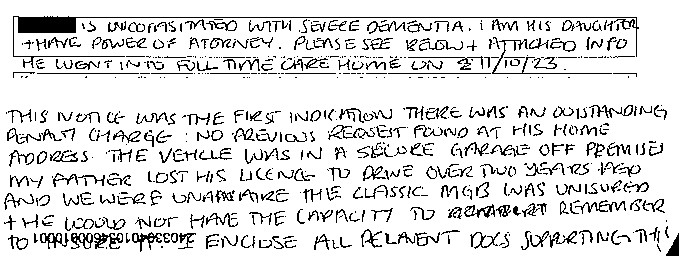 IS INCOPASITATED WITH SEVERE DEMENTIA. I AM HIS DAUGHTER
+ HAVE POWER OF ATORNEY. PLEASE SEE BELOW + ATTACHED INFO
HE WENT INTO FULL TIME CARE HOME ON 11/10/23.
THIS NOTICE WAS THE FIRST INDICATION THERE WAS AN OUTSTANDING
PENALTY CHARGE: NO PREVIOUS REQUEST FOUND AT HIS HOME
ADDRESS. THE VEHCLE WAS IN A SECURE GARAGE OFF PREMISES
MY FATHER LOST HIS LICENCE TO DRIVE OVER TWO YEARS AGO
AND WE WERE UNAWARE THE CLASSIC MGB WAS UNISURED
+ HE WOULD NOT HAVE THE CAPACITY TO REMEMBER
TO INSURE IT. I ENCLOSE ALL RELAVENT DOCS SUPPORTING THIS